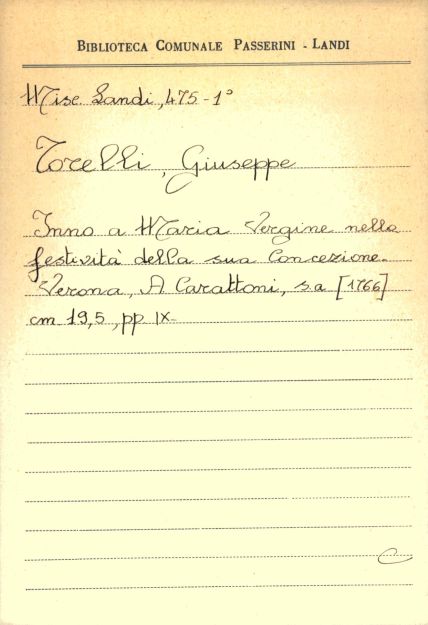 BIBLIOTECA COMUNALE PASSERINI - LANDI
Misc. Landi, 475-1°
Torelli, Giuseppe
Inno a Maria Vergine nella
festività della sua Concezione.
Verona, A Carattoni, s.a [1766]
cm 19,5, pp. IX.
C